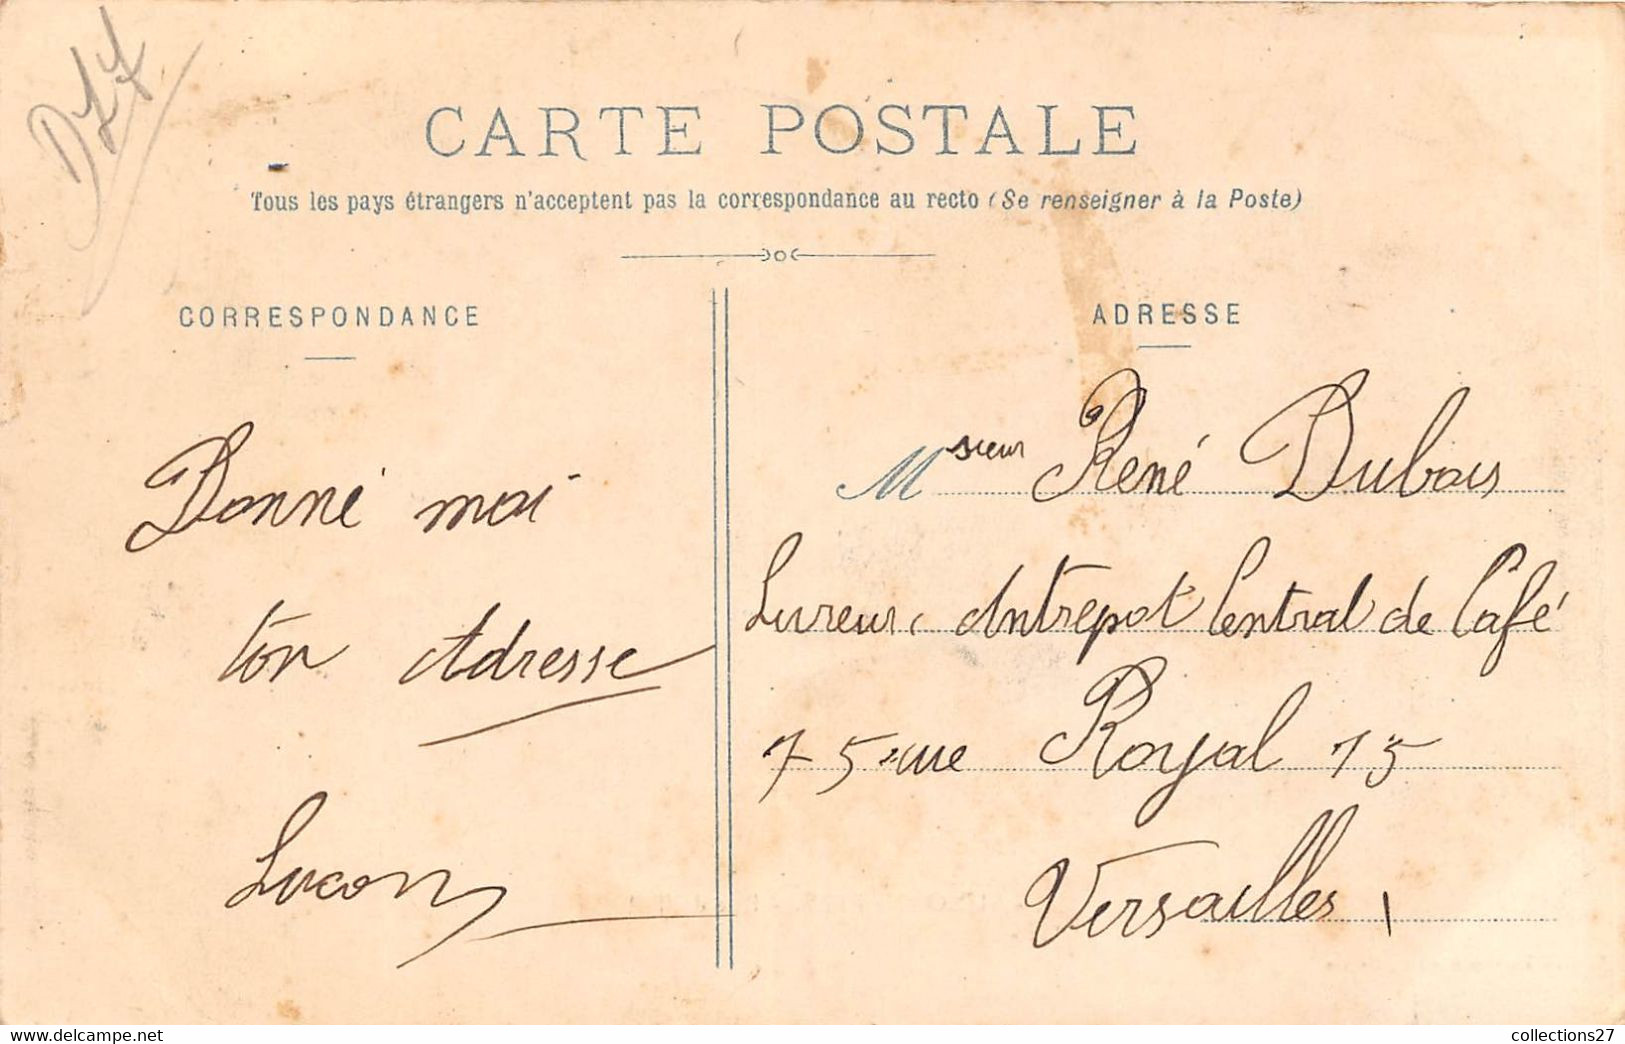 D77
CARTE POSTALE
Tous les pays étrangers n'acceptent pas la correspondance au recto (Se renseigner à la Poste)
CORRESPONDANCE
Donne moi
ton Adresse
Lucon
ADRESSE
Msieur René Dubois
Livreur, Antrepot Central de Café
75 rue Royal 75
Versailles
www.delcampe.net
collections27